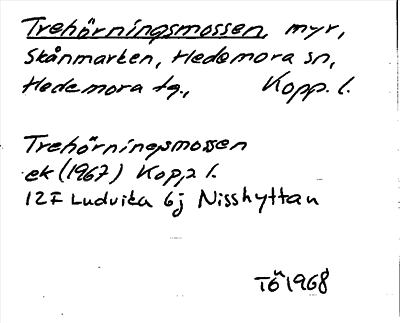 Trehörningsmossen, myr,
Skånmarken, Hedemora sn,
Hedemora tg., Kopp. l.
Trehörningsmossen
ek (1967) Kopp l.
12F Ludvika 6j Nisshyttan
TÖ 1968